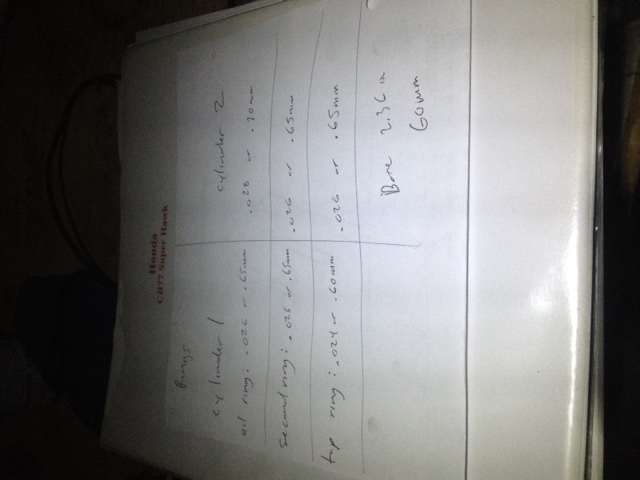 Honda
CB77 Super Hawk
Rings:
cylinder 1 cylinder 2
oil ring: .026 or .65mm .028 or .70mm
second ring: .026 or .65mm .026 or .65mm
top ring: .024 or .60mm .026 or .65mm
Bore 2.36 in
60mm